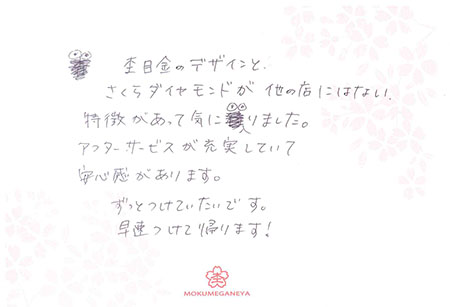 杢目金のデザインと、
さくらダイヤモンドが他の店にはない、
特徴があって気に入りました。
アフターサービスが充実していて
安心感があります。
ずっとつけていたいです。
早速つけて帰ります!
MOKUMEGANEYA